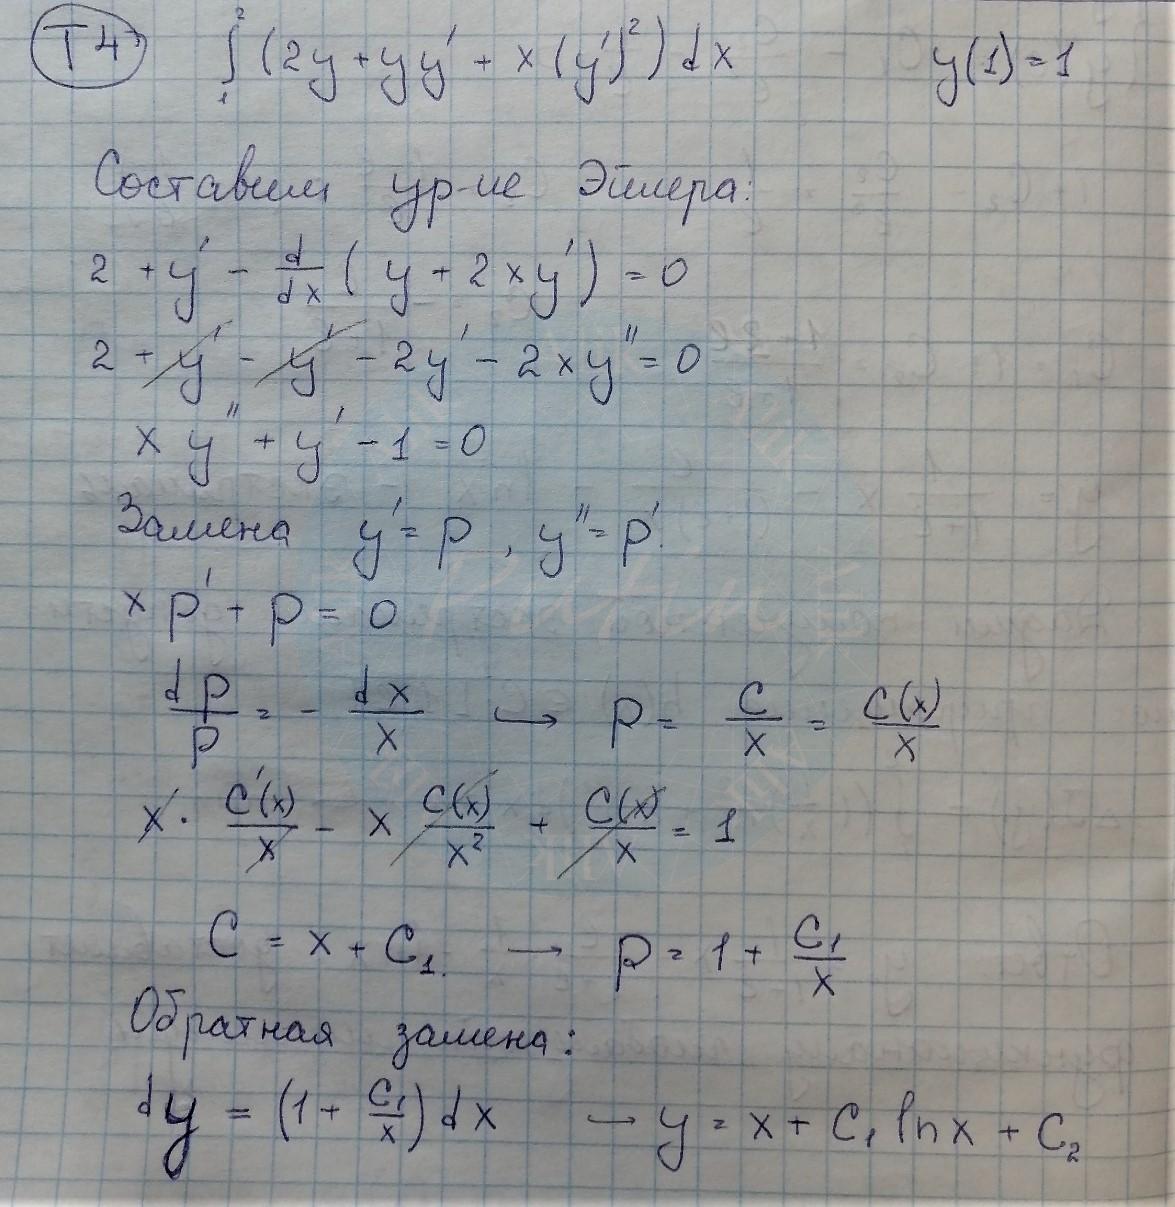 T4 ∫₁² (2y + yy' + x(y')²) dx y(1) = 1
Составим ур-ие Эйлера:
2 + y' - d/dx (y + 2xy') = 0
2 + y' - y' - 2y' - 2xy'' = 0
xy'' + y' - 1 = 0
Замена y' = p, y'' = p'.
xp' + p = 0
dp/p = - dx/x → p = C/x = C(x)/x
x · C'(x)/x - x C(x)/x² + C(x)/x = 1
C = x + C₁ → p = 1 + C₁/x
Обратная замена:
dy = (1 + C₁/x) dx → y = x + C₁ ln x + C₂